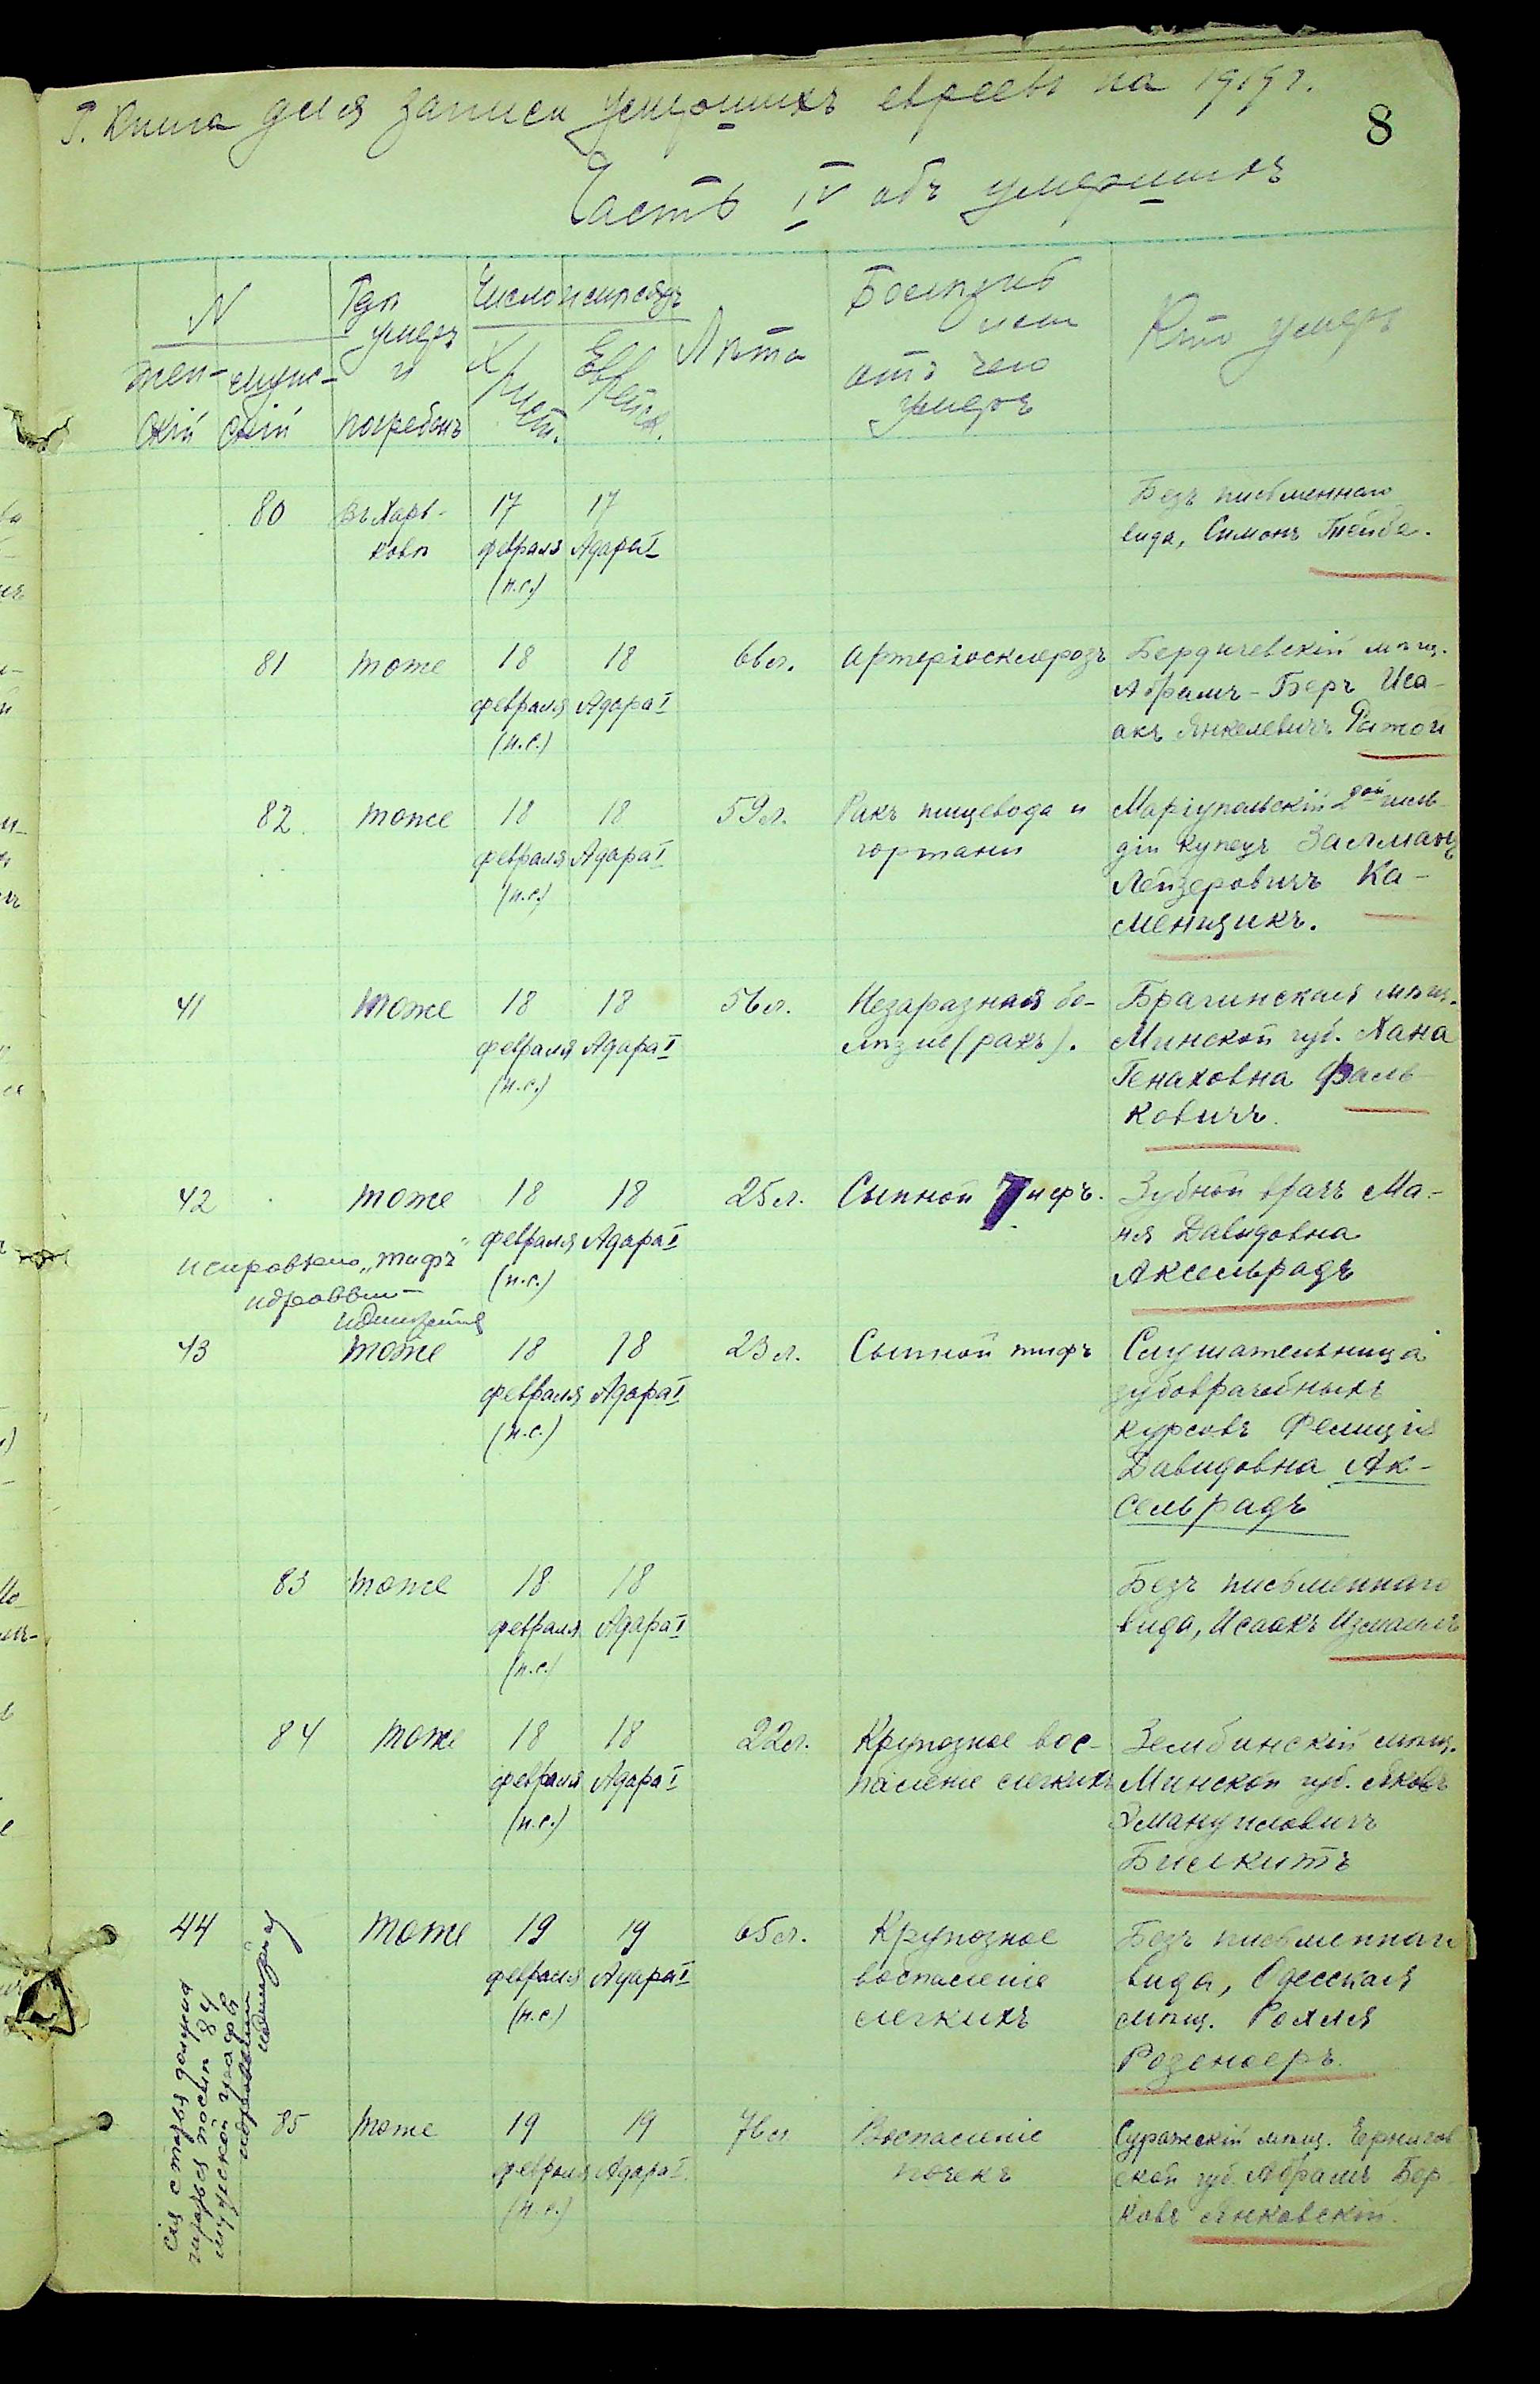 Книга для записи умершихъ евреевъ на 1919 г.
8
Часть IV объ умершихъ
N
Женскій
Мужскій
Гдѣ умеръ и погребенъ
Число и мѣсяцъ
Христ.
Еврейск.
Лѣта
Болѣзнь или отъ чего умеръ
Кто умеръ
80 въ Харь- 17 17 Безъ письменнаго
ковѣ февраля Адара I вида, Симонъ
(н.с.)
81 тоже 18 18 66 л. Артеріосклерозъ Бердичевскій мѣщ.
февраля Адара I Абрамъ-Беръ Иса-
(н.с.) акъ Янкелевичъ
82 тоже 18 18 59 л. Ракъ пищевода и Маріупольскій 2ой гиль-
февраля Адара I гортани діи купецъ Залманъ
(н.с.) Лейзеровичъ Ка-
менщикъ.
41 тоже 18 18 56 л. Незаразная бо- Брагинская мѣщ.
февраля Адара I лѣзнь (ракъ). Минской губ. Хана
(н.с.) Генаховна Фаль-
ковичъ.
42 тоже 18 18 25 л. Сыпной Тифъ. Зубной врачъ Ма-
февраля Адара I ня Давидовна
(н.с.) Аксельрадъ
исправлено „тифъ“
43 тоже 18 18 23 л. Сыпной тифъ Слушательница
февраля Адара I зубоврачебныхъ
(н.с.) курсовъ Фелиція
Давидовна Ак-
сельрадъ
83 тоже 18 18 Безъ письменнаго
февраля Адара I вида, Исаакъ
(н.с.)
84 тоже 18 18 22 л. Крупозное вос- Зембинскій мѣщ.
февраля Адара I паленіе легкихъ Минской губ. Яковъ
(н.с.) Эмануиловичъ
44 тоже 19 19 65 л. Крупозное Безъ письменнаго
февраля Адара I воспаленіе вида, Одесская
(н.с.) легкихъ мѣщ. Рохля
85 тоже 19 19 Воспаленіе Суражскій мѣщ. Чернигов
февраля Адара I почекъ ской губ. Абрамъ Бер
(н.с.) ковъ Янковскій.
Сія статья должна